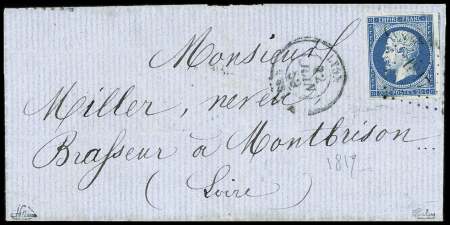 EMPIRE FRANC
LYON
JUIN
Monsieur
Miller, neveu
Brasseur à Montbrison
(Loire)